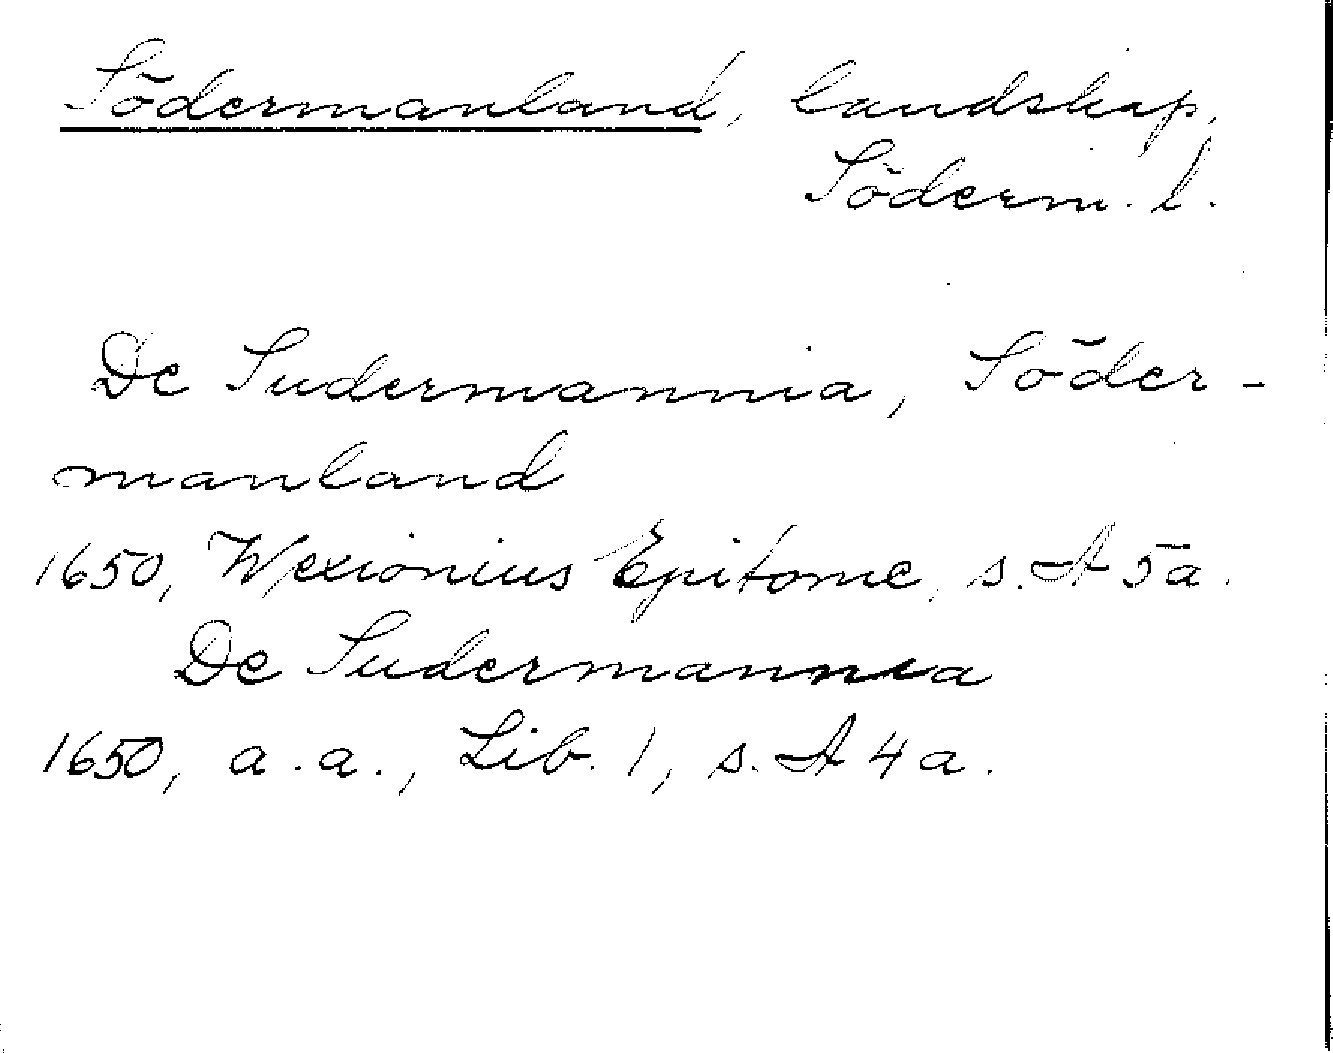 Södermanland, landskap,
Söderm. l.
De Sudermannia, Söder-
manland
1650, Wexionius Epitome, s. A 5a.
De Sudermannia
1650, a. a., Lib. 1, s. A 4 a.